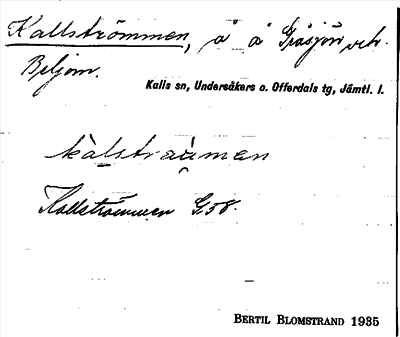 Kallströmmen, å å Gråsjön och
Beljom.
Kalls sn, Undersåkers o. Offerdals tg, Jämtl. l.
kalstraumen
Kallströmmen G58.
BERTIL BLOMSTRAND 1935